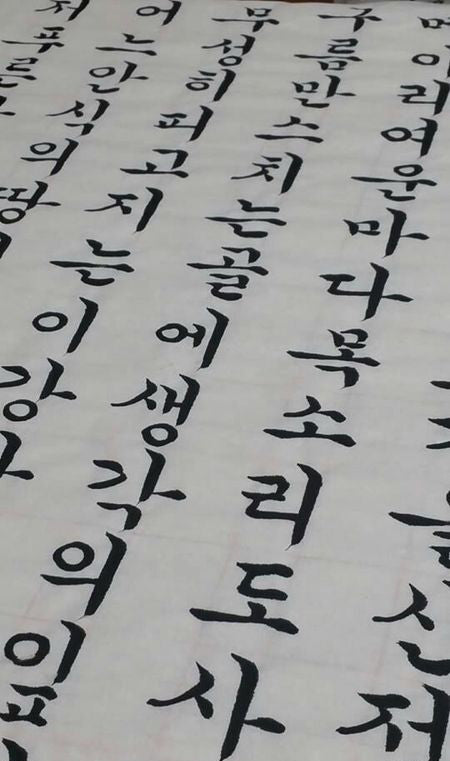 신저
리여운마다목소리도사
구름만스치는골에생각의이
무성히피고지는이강
어느안식의땅
저푸른